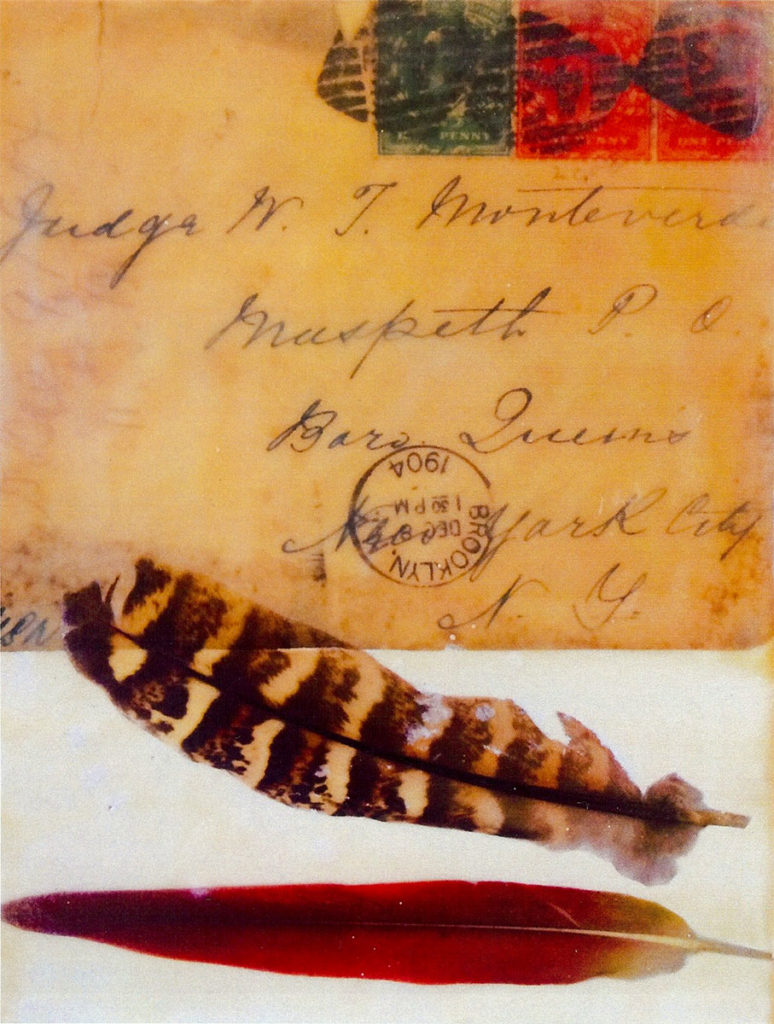 PENNY
ONE PENNY
Judge W. T. Monteverde
Maspeth P. O.
Boro. Queens
New York City
N. Y.
BROOKLYN.
DEC 8
1 30 PM
1904